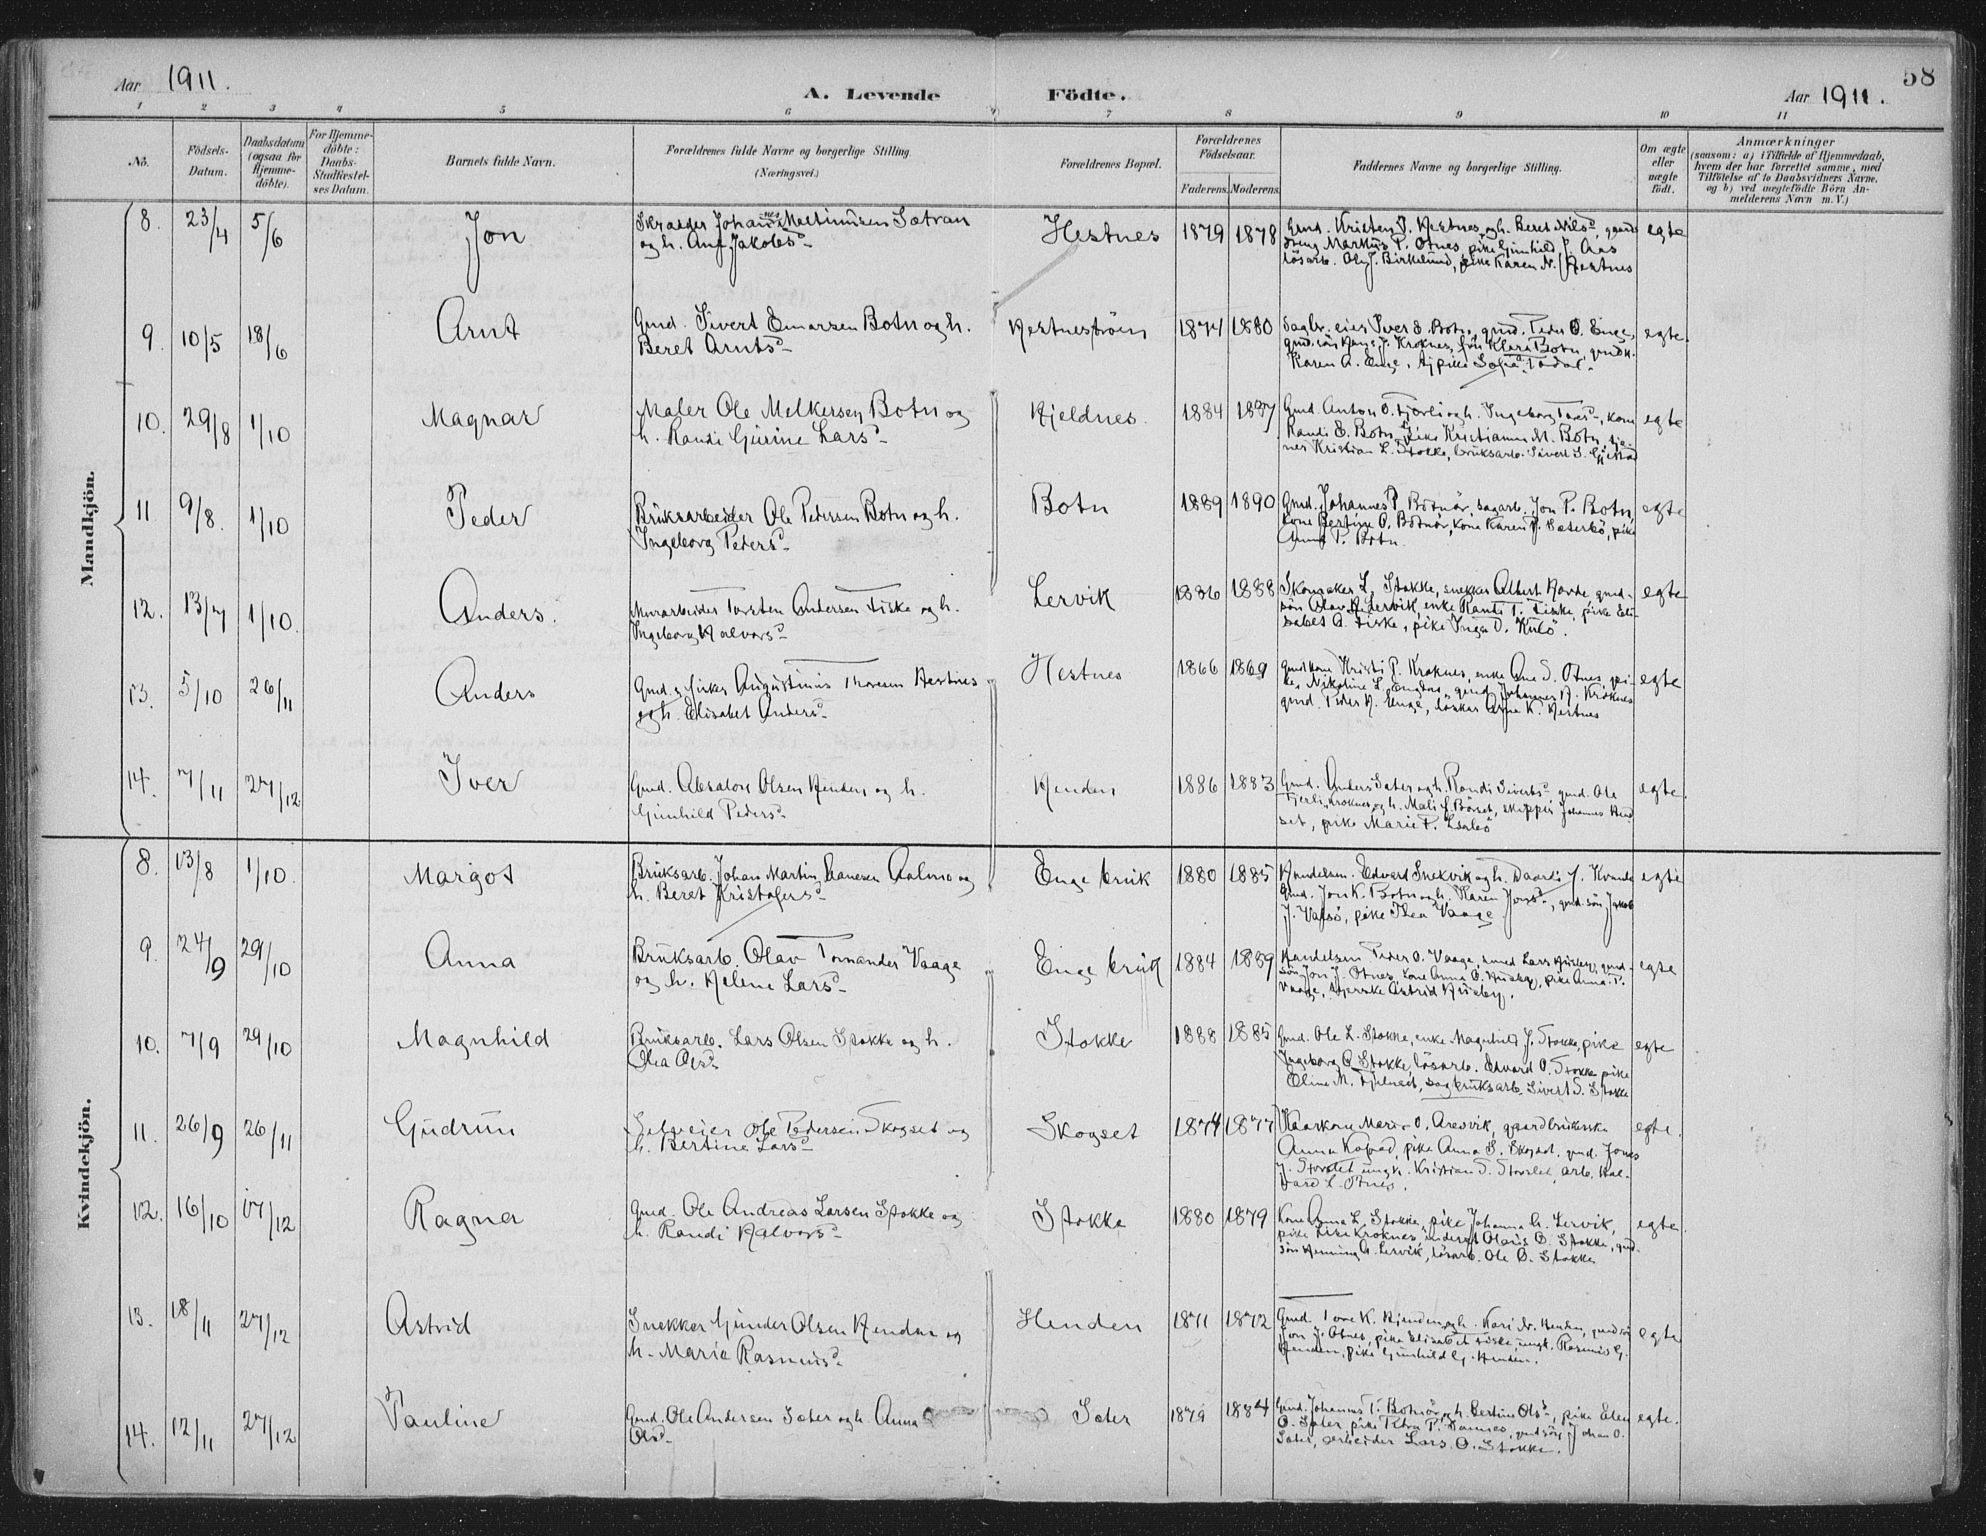 58
Aar 1911.
A. Levende Födte.
Aar 1911.
1 2 3 4 5 6 7 8 9 10 11
No.
Födsels-Datum.
Daabsdatum (ogsaa for Hjemme-döbte).
For Hjemme-döbte: Daabs-Stadfæstel-ses Datum.
Barnets fulde Navn.
Forældrenes fulde Navne og borgerlige Stilling.
(Næringsvei.)
Forældrenes Bopæl.
Forældrenes Födselsaar.
Faderens. Moderens.
Faddernes Navne og borgerlige Stilling.
Om ægte eller uægte födt.
Anmærkninger
(saasom: a) i Tilfælde af Hjemmedaab,
hvem der har forrettet samme, med
Tilföielse af to Daabsvidners Navne,
og b) ved uægtefödte Börn An-
melderens Navn m. V.)
Mandkjön.
8. 23/4 5/6 Jon
Skradder Johan Meltinusen Sætran
og h. Ane Jakobsd.
Hestnes 1879 1878
Gmd. Kristen J. Hestnes og h. Beret Nilsd, gaard
dreng Markus P. Otnes, pike Gunhild J. Aas
lösarb. Ole J. Birkelund, pike Karen N. Hestnes
egte
9. 10/5 18/6 Arnt
Gmd. Sivert Einarsen Botn og h.
Beret Arntsd.
Hestneströen 1874 1880
Sagbr. eier Iver E. Botn, gmd. Peder O. Enge,
gmd. sön Hans J. Kroknes, frk Klara Botn, gmdk.
Karen A. Enge, tj pike Sofie Todal.
egte.
10. 29/8 1/10 Magnar
Maler Ole Melkersen Botn og
h. Randi Gurine Larsd.
Kjeldnes. 1884 1887
Gmd. Anton O. Fjærli og h. Ingeborg Toresd., kone
Randi E. Botn, pike Kristianna M. Botn, tje-
ner Kristian L. Stokke, bruksarb. Sivert S.
egte
11. 9/8. 1/10 Peder
Bruksarbeider Ole Pedersen Botn og h.
Ingeborg Pedersd.
Botn 1889 1890
Gmd. Johannes P. Botnör, sagarb. Jon P. Botn,
kone Bertine O. Botnör, kone Karen P. Sæterbö, pike
Anna P. Botn.
egte
12. 13/7 1/10. Anders.
Murarbeider Torsten Andersen Fiske og h.
Ingeborg Halvorsd.
Lervik 1886 1888
Skomaker L. Stokke, snekker Albert Hovde gmd-
sön Olav H. Lervik, enke Randi T. Fiske, pike Eli-
sabet A. Fiske, pike Inga O. Kulö.
egte
13. 5/10 26/11 Anders
Gmd. & fisker Augustinus Thoresen Hestnes
og h. Elisabet Andersd.
Hestnes 1866 1869
Gmdkone Kristi P. Kroknes, enke Ane S. Otnes, pi-
ke Nikoline L. Engdal, gmd. Johannes H. Kroknes
gmd. Peder H. Enge, löskar Arne K. Hestnes
egte
14. 7/11 27/12 Iver
Gmd. Absalon Olsen Henden og h.
Gunhild Pedersd.
Henden 1886 1883
Gmd. Anders Sater og h. Randi Sivertsd. gmd. Ole
Fjerli, Kroknes og h. Mali J. Börset, skipper Johannes
set, pike Marie P.
egte.
Kvindekjön.
8. 13/8 1/10. Margot
Bruksarb. Johan Martin Hansen Aalmo og
h. Beret Kristofersd.
Enge bruk 1880 1885
Handelsm. Edvard Snekvik og h. J. Kvande
Gmd. Jon K. Botn og h. Karen Jonsd., gmd. sön Jakob
J. Valsö, pike Thea Vaage
egte
9. 24/9 29/10 Anna
Bruksarb. Olav Tomander Vaage
og h. Helene Larsd.
Enge bruk 1884 1889
Handelsm Peder O. Vaage, smed Lars Huseby, gmd-
sön Jon J. Otnes, kone Anna O. Huseby, pike Anna P.
Vaage, syerske Astrid Huseby.
egte
10. 7/9 29/10 Magnhild
Bruksarb. Lars Olsen Stokke og h.
Olea Olsd.
Stokke 1888 1885
Gmd. Ole L. Stokke, enke Magnhild J. Stokke, pike
Ingeborg O. Stokke, lösarb. Edvard O. Stokke pike
Eline M. Fjelnset, sagbruksarb. Sivert S. Stokke
egte
11. 26/9 26/11 Gudrun
Selveier Ole Pedersen Skogset og
h. Bertine Larsd.
Skogset 1874 1877
Kaarkone Marie O. Aresvik, gaardbrukerske
Anna pike Anna B. Skogset, gmd. Jonas
J. Storslet ungk. Kristian T. Storslet, arb. Hal-
vard L. Otnes.
egte.
12. 16/10 17/12 Ragna
Gmd. Ole Andreas Larsen Stokke og
h. Randi Halvorsd.
Stokke 1880 1879
Kone Anna L. Stokke, pike Johanna H. Lervik,
pike Lise Kroknes, inderst Olaus O. Stokke, gmd-
sön Henning H. Lervik, lösarb. Ole O. Stokke
egte.
13. 18/11 27/12 Astrid
Snekker Gunder Olsen Henden og
h. Marie Rasmusd.
Henden 1871 1872
Gmd. Tore K. Henden og h. Kari N. Henden, gmdsön
Jon J. Otnes, pike Elisabet Fiske, ungk. Rasmus G.
Henden, pike Gunhild G. Henden.
egte
14. 12/11 27/12 Pauline
Gmd. Ole Andersen Sater og h. Anna
Olsd.
Sater 1879 1884
Gmd. Johannes T. Botnör og h. Bertine Olsd., pike Elen
O. Sater pike Petra P. gmdsön Johan O.
Sater, arbeider Lars O. Stokke.
egte.